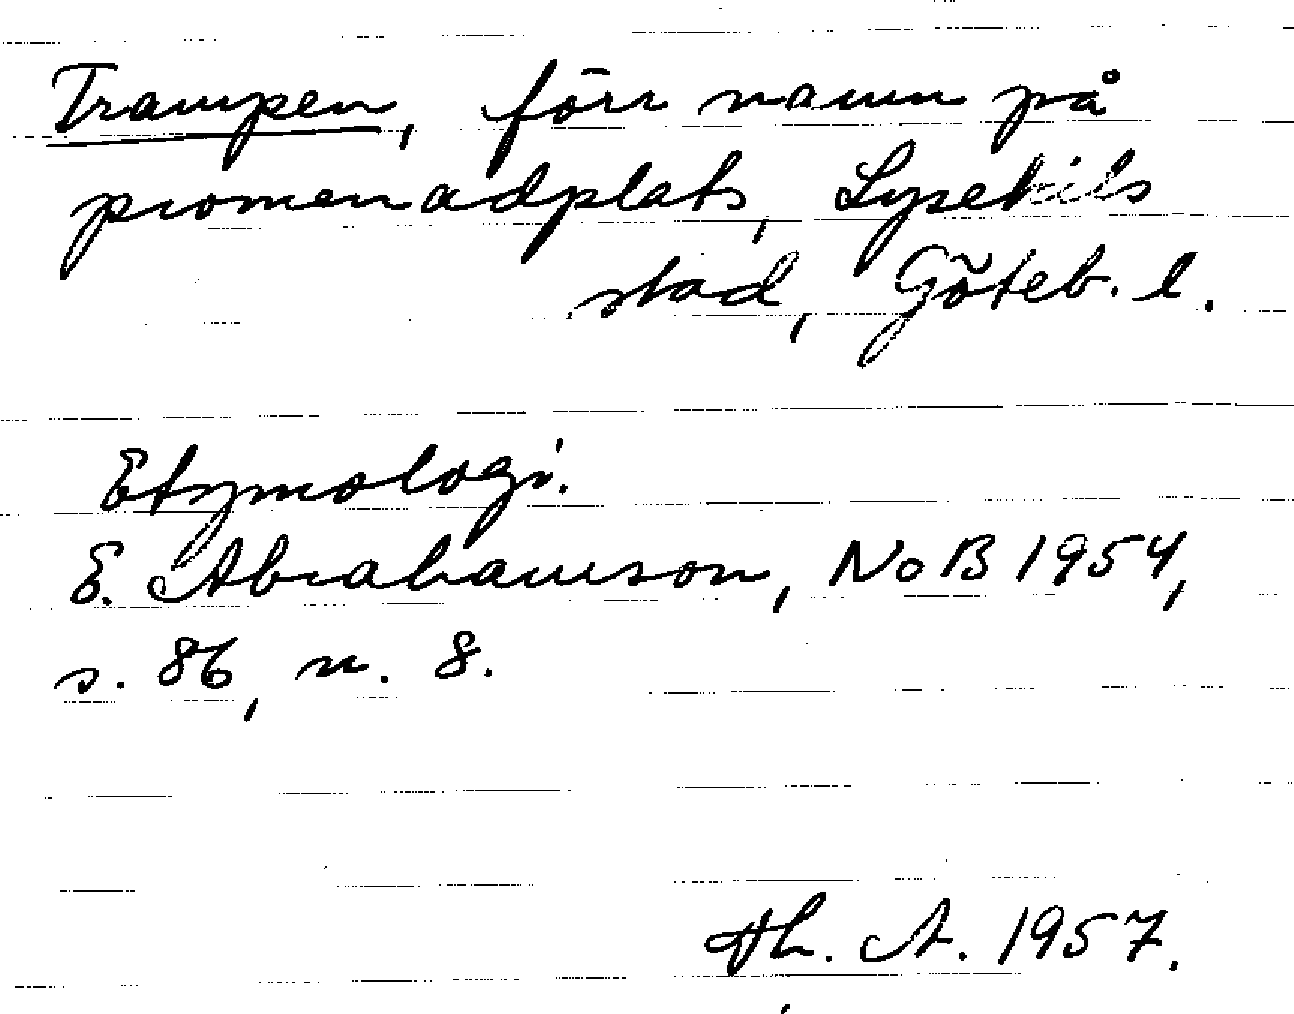 Trampen, förr namn på
promenadplats, Lysekils
stad, Göteb. l.
Etymologi.
E. Abrahamson, NoB 1954,
s. 86, n. 8.
Th. A. 1957.